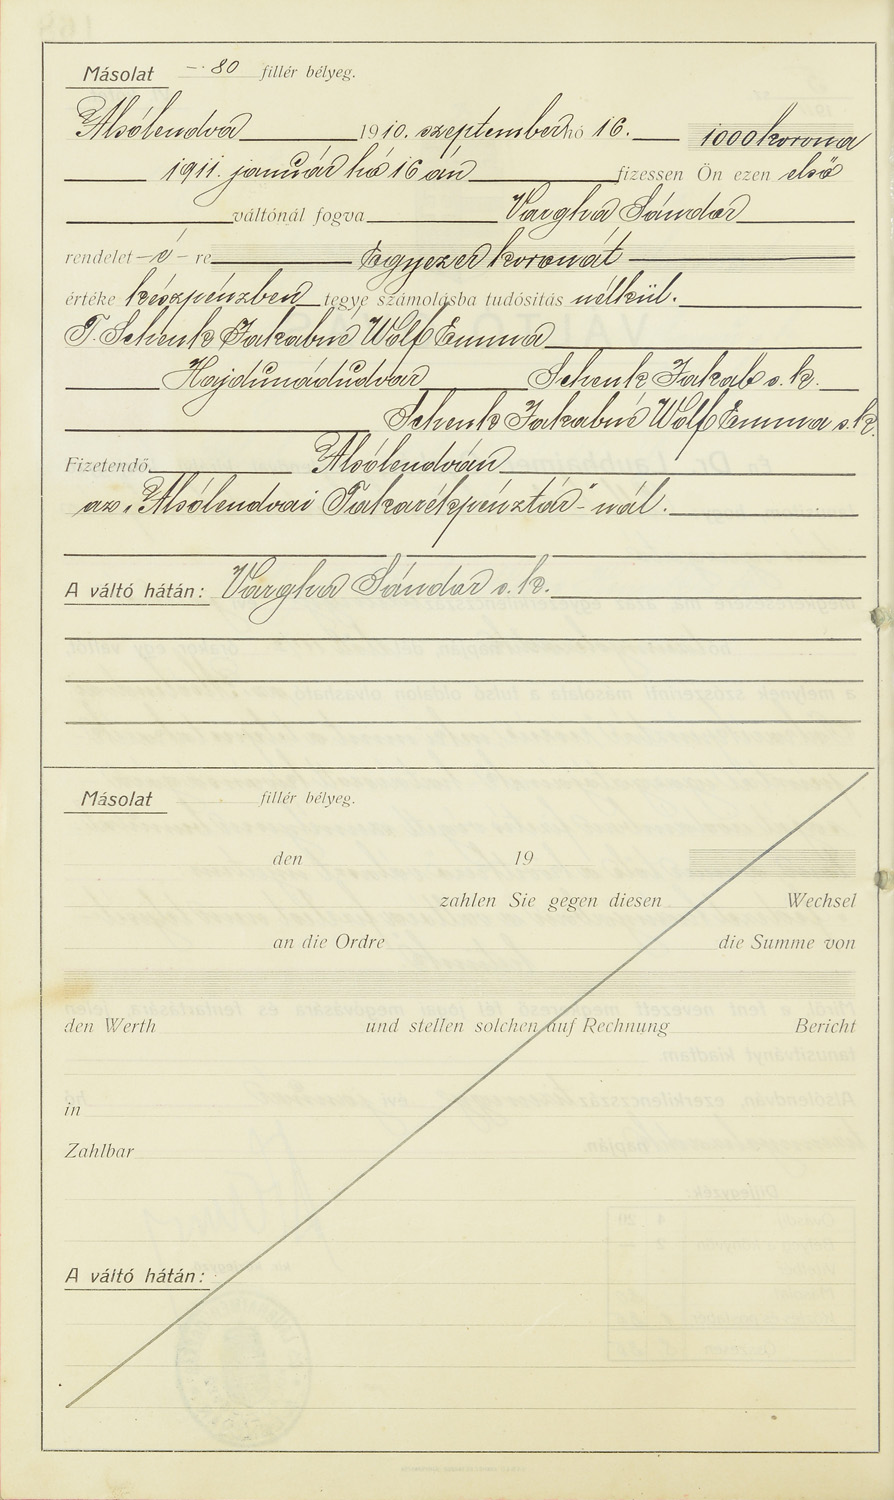 Másolat —·80 fillér bélyeg.
Alsólendva 1910. szeptember hó 16. 1000 korona
1911. január hó 16 án fizessen Ön ezen első
váltónál fogva Vargha Sándor
rendelet —é— re Egyezer koronát
értéke készpénzben tegye számolásba tudósitás nélkül.
T. Schenk Jakabné Wolf Emma
Hajdunádudvar Schenk Jakab s. k.
Schenk Jakabné Wolf Emma s. k.
Fizetendő Alsólendván
az „Alsólendvai Takarékpénztár"-nál.
A váltó hátán: Vargha Sándor s. k.
Másolat fillér bélyeg.
den 19
zahlen Sie gegen diesen Wechsel
an die Ordre die Summe von
den Werth und stellen solchen auf Rechnung Bericht
in
Zahlbar
A váltó hátán: